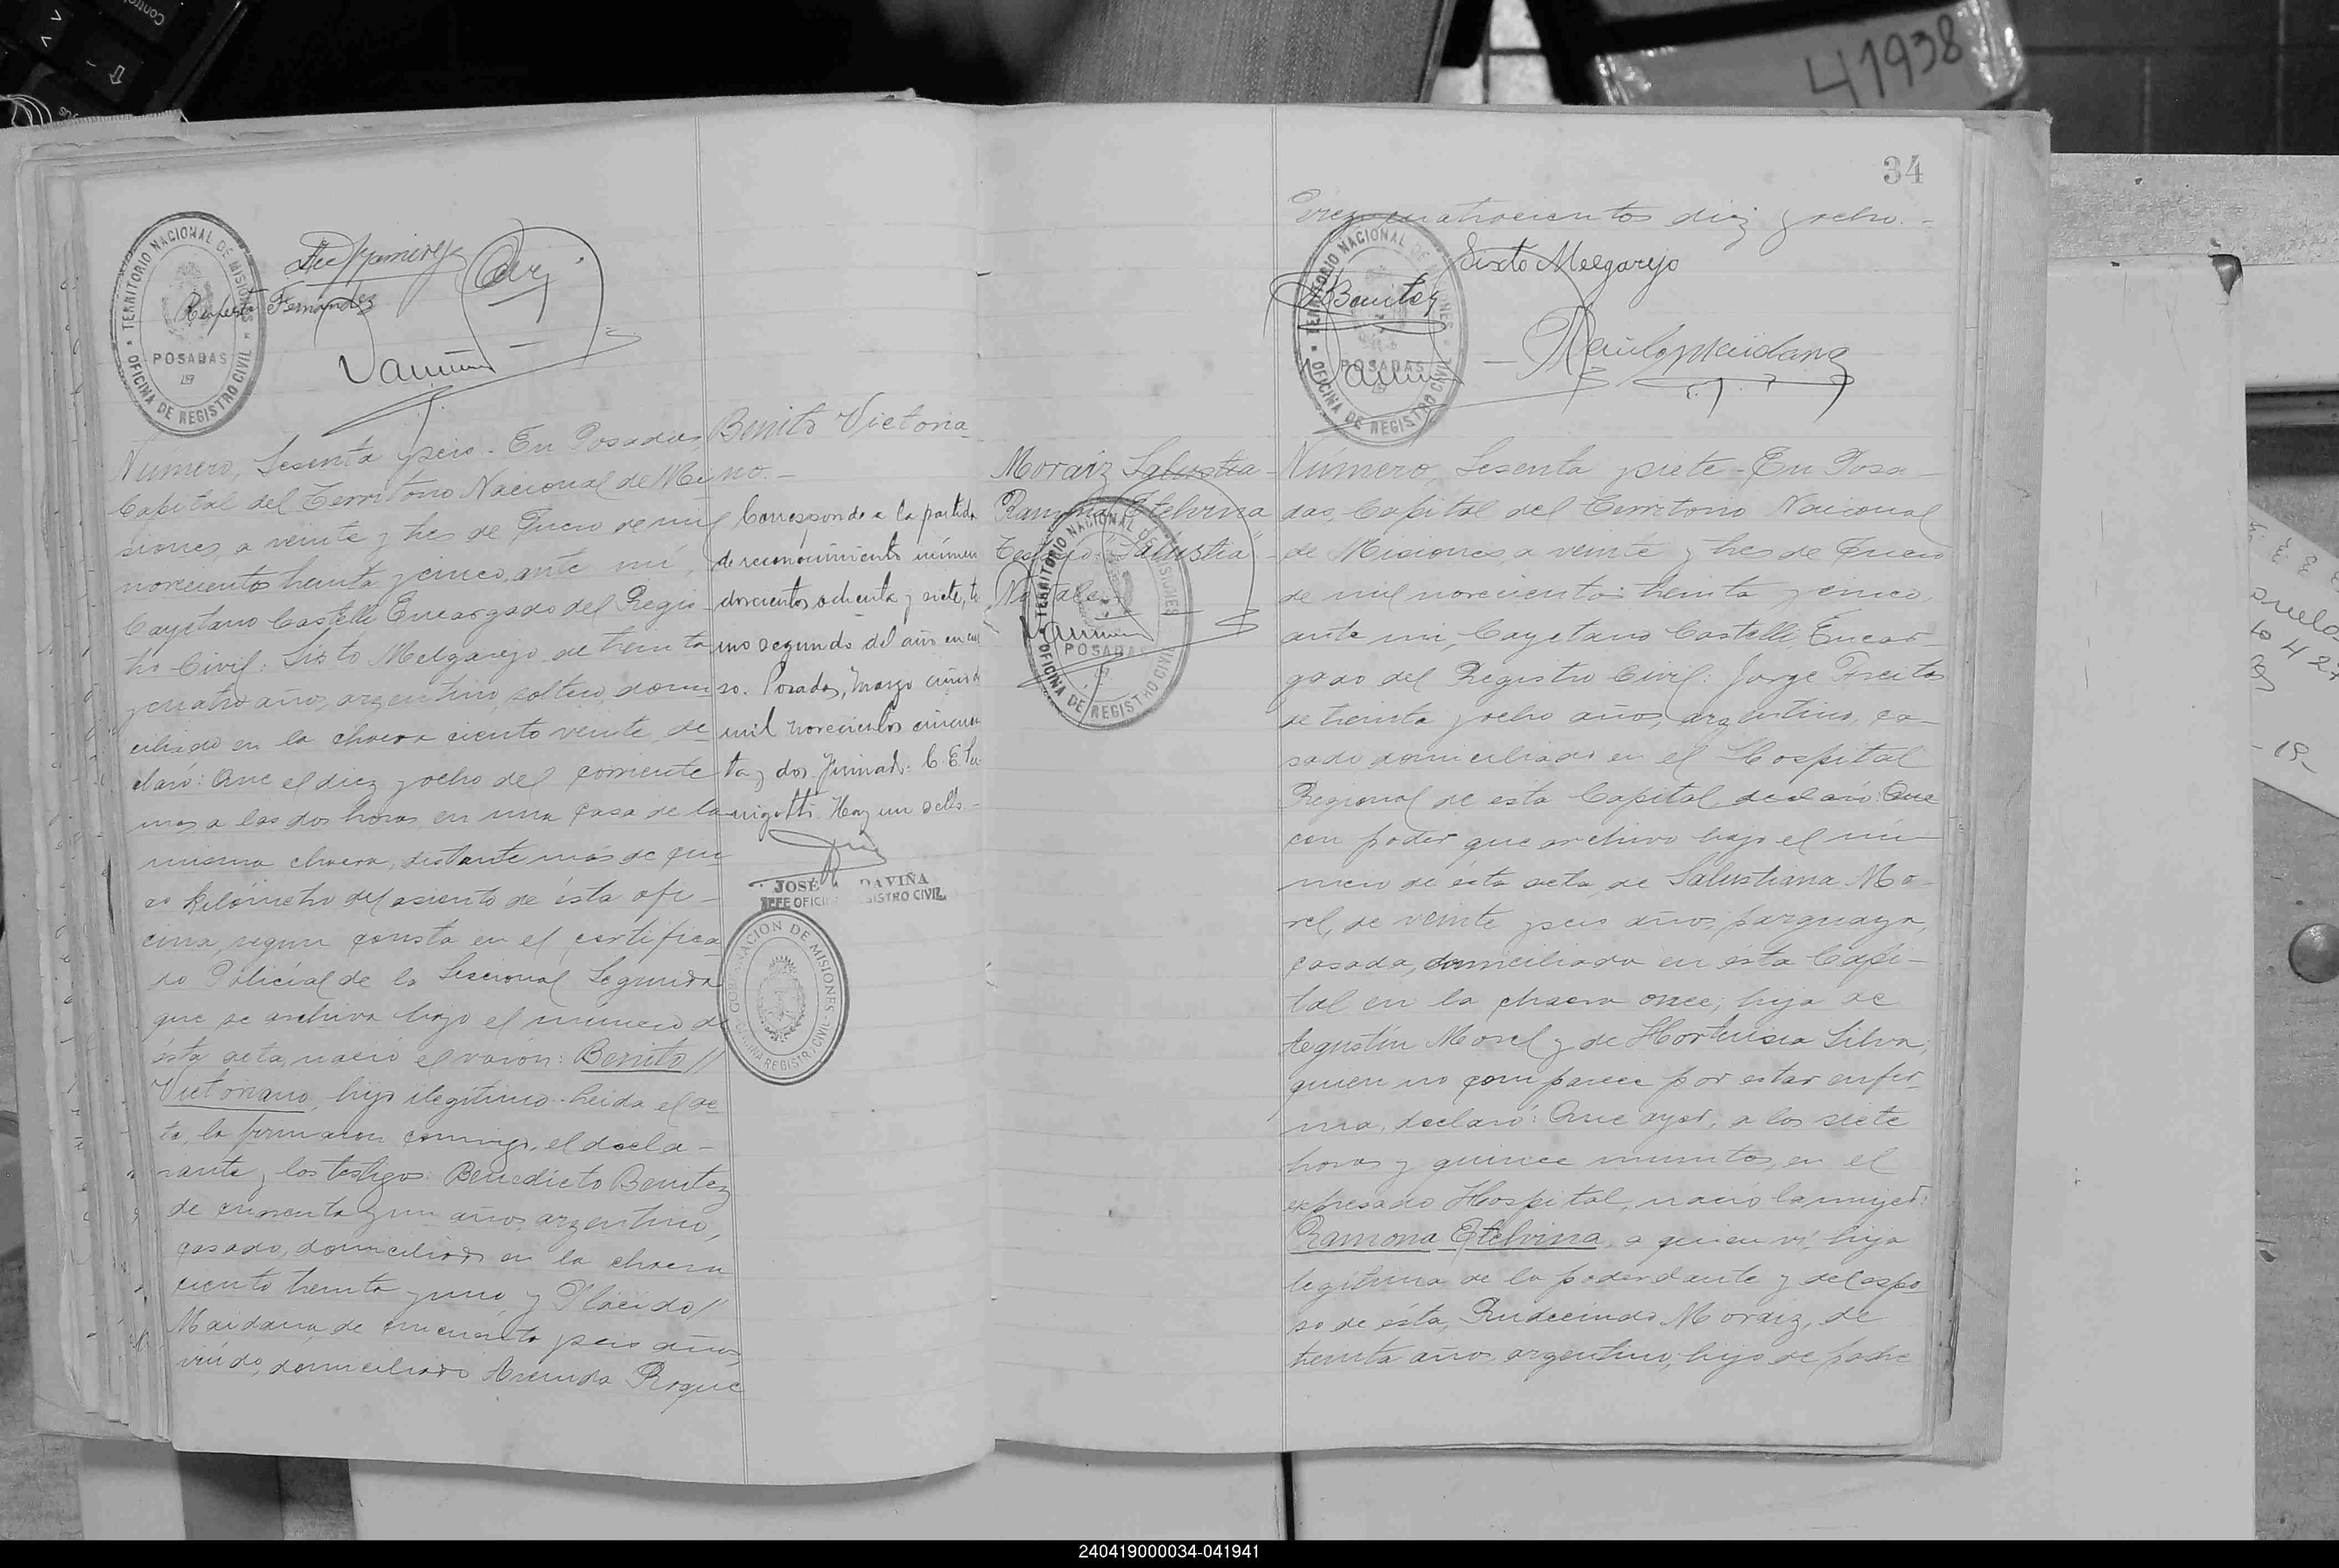 41938
TERRITORIO NACIONAL DE MISIONES
POSADAS
OFICINA DE REGISTRO CIVIL
Fernández
Número, Sesenta y seis. En Posadas,
Capital del Territorio Nacional de Mi
siones, a veinte y tres de Enero de mil
novecientos treinta y cinco, ante mí,
Cayetano Castelli Encargado del Regis-
tro Civil: Sisto Melgarejo de treinta
y cuatro años, argentino, soltero, domi
ciliado en la chacra ciento veinte, de
claró: Que el diez y ocho del corriente
mes a las dos horas en una casa de la
misma chacra, distante más de cin
co kilómetro del asiento de ésta ofi-
cina, segun consta en el certifica
do Policial de la Seccional Segunda
que se archiva bajo el numero de
ésta acta, nació el varón: Benito //
Victoriano, hijo ilegítimo. Leida el ac
ta, la firmaron conmigo, el decla-
rante y los testigos: Benedicto Benitez
de cincuenta y un años, argentino,
casado, domiciliado en la chacra
ciento treinta y uno, y Plácido //
Maidana de cincuenta y seis años,
viudo, domiciliado Avenida Roque
Benito Victoria
no.-
Corresponde a la partida
de reconocimiento número
doscientos ochenta y siete, to
mo segundo del año en cur
so. Posadas, Marzo cinco de
mil novecientos cincuen
ta y dos. Firmado: C. E. Lu
nigotti. Hay un sello.-
JOSÉ DAVIÑA
JEFE OFICINA REGISTRO CIVIL
GOBERNACION DE MISIONES
OFICINA REGISTRO CIVIL
34
Perez cuatrocientos diez y ocho.-
TERRITORIO NACIONAL DE MISIONES
POSADAS
OFICINA DE REGISTRO CIVIL
Sixto Melgarejo
Benitez
Maidana
Moraiz Salustia-
Ramona Etelvina
Testado "Salustia"-
No vale.
TERRITORIO NACIONAL DE MISIONES
POSADAS
OFICINA DE REGISTRO CIVIL
Número, Sesenta y siete- En Posa-
das, Capital del Territorio Nacional
de Misiones, a veinte y tres de Enero
de mil novecientos treinta y cinco,
ante mi, Cayetano Castelli, Encar-
gado del Registro Civil: Jorge Freitas
de treinta y ocho años, argentino, ca-
sado domiciliado en el Hospital
Regional de esta Capital, declaró: Que
con poder que archivo bajo el nú
mero de ésta acta, de Salustiana Mo-
rel, de veinte y seis años, parguaya,
casada, domiciliada en ésta Capi-
tal en la chacra once; hija de
Agustín Morel y de Hortensia Silva,
quien no comparece por estar enfer
ma, declaró: Que ayer, a las siete
horas y quince minutos, en el
expresado Hospital, nació la mujer:
Ramona Etelvina, a quien vi, hija
legítima de la poderdante y del espo
so de ésta, Rudecindo Moraiz, de
treinta años, argentino, hijo de padre
240419000034-041941